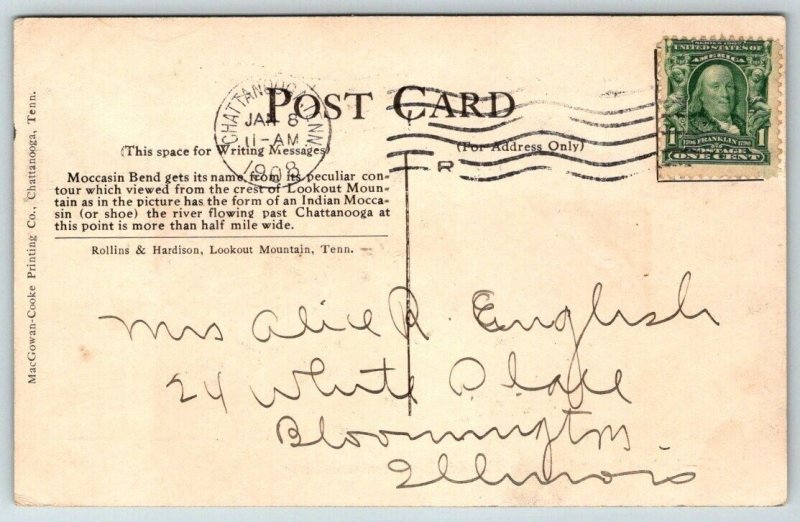 POST CARD
CHATTANOOGA, TENN.
JAN 8
11-AM
1908
R
UNITED STATES OF
AMERICA
1706 FRANKLIN 1790
1 1
POSTAGE
ONE CENT
(This space for Writing Messages)
(For Address Only)
Moccasin Bend gets its name from its peculiar con-
tour which viewed from the crest of Lookout Moun-
tain as in the picture has the form of an Indian Mocca-
sin (or shoe) the river flowing past Chattanooga at
this point is more than half mile wide.
Rollins & Hardison, Lookout Mountain, Tenn.
MacGowan-Cooke Printing Co., Chattanooga, Tenn.
Mrs Alice R. English
24 White Place
Bloomington.
Illinois